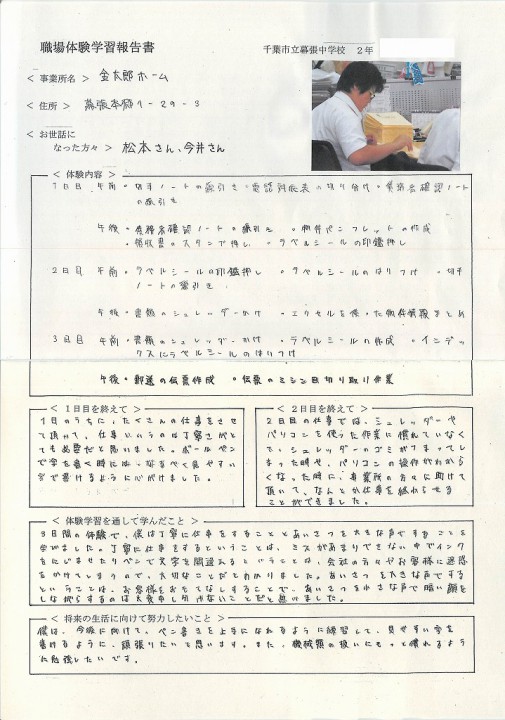 職場体験学習報告書
千葉市立幕張中学校 2年
< 事業所名 > 金太郎ホーム
< 住所 > 幕張本郷1-29-3
< お世話に
なった方々 > 松本さん、今井さん
< 体験内容 >
1日目 午前・切手ノートの線引き・電話対応表の切り分け・業務名確認ノート
の線引き
午後・業務名確認ノート・線引き ・物件パンフレットの作成
・領収書のスタンプ押し ・ラベルシールの印鑑押し
2日目 午前・ラベルシールの印鑑押し ・ラベルシールのはりつけ ・切手
ノートの線引き
午後・書類のシュレッダーかけ ・エクセルを使った物件情報まとめ
3日目 午前・書類のシュレッダーかけ ・ラベルシールの作成 ・インデッ
クスにラベルシールのはりつけ
午後・郵送の伝票作成 ・伝票のミシン目切り取り作業
< 1日目を終えて >
1日のうちに、たくさんの仕事をさせ
て頂いて、仕事というのは丁寧さがと
ても必要だと思いました。ボールペン
で字を書く時には、なるべく見やすい
字で書けるように心がけました。
< 2日目を終えて >
2日目の仕事では、シュレッダーや
パソコンを使った作業に慣れていなく
て、シュレッダーのゴミがつまってし
まった時や、パソコンの操作がわから
なくなった時に、事業所の方々に助けて
頂いて、なんとか仕事を終わらせる
ことができました。
< 体験学習を通して学んだこと >
3日間の体験で、僕は丁寧に仕事をすることとあいさつを大きな声ですることを
学びました。丁寧に仕事をするということは、ミスがあまりできない中でインク
をにじませたりペンで文字を間違えるということは、会社の方々やお客様に迷惑
をかけてしまうので、大切なことだとわかりました。あいさつを大きな声でする
ということは、お客様をおもてなしすることで、あいさつを小さな声で暗い顔を
しながらするのは大変申し分けないことだと気づきました。
< 将来の生活に向けて努力したいこと >
僕は、今後に向けて、ペン書きを上手になれるように練習して、見やすい字を
書けるように、頑張りたいと思います。また、機械類の扱いにもっと慣れるよう
に勉強したいです。